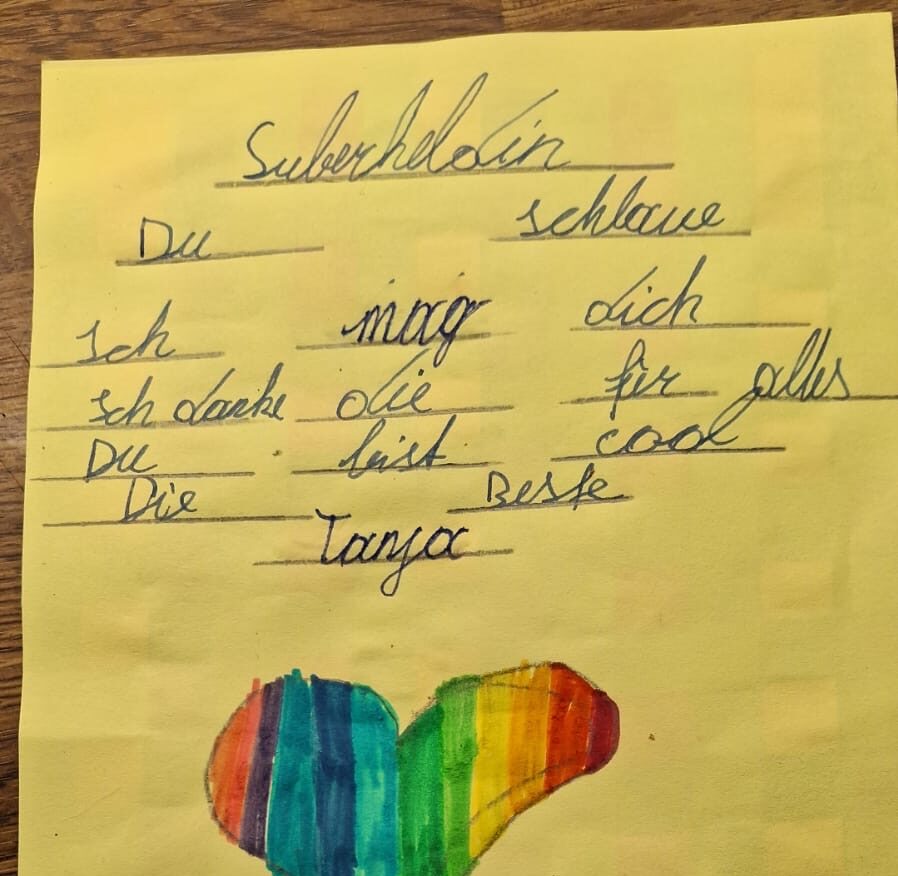 Suberheldin
Du schlaue
Ich mag dich
Ich danke die für alles
Du bist cool
Die Beste
Tanja